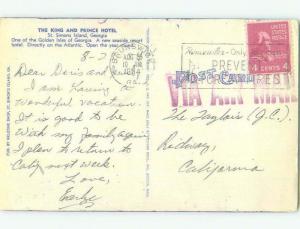 THE KING AND PRINCE HOTEL
St. Simons Island, Georgia
One of the Golden Isles of Georgia. A new seaside resort
hotel. Directly on the Atlantic. Open the year
8-2
Dear Doris and
I am having a
wonderful vacation.
It is good to be
with my family again
I plan to return to
Calif next week.
Love,
UNITED STATES
4 CENTS 4
Remember-Only
PREVENT
FOREST
POST CARD
VIA AIR MAIL
The Taylors (J.C.)
Redway,
California